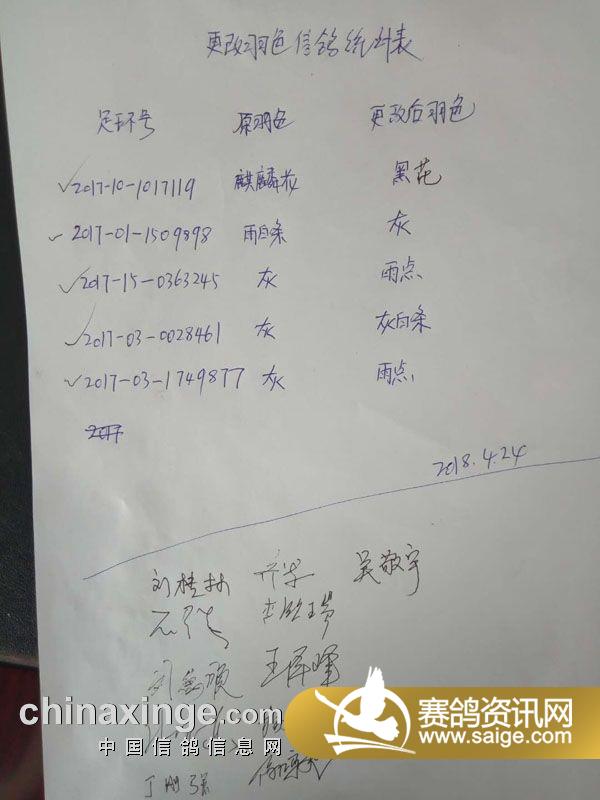 更改羽色信鸽统计表
足环号 原羽色 更改后羽色
2017-10-1017119 麒麟花 黑花
2017-01-1509898 雨白条 灰
2017-15-0363245 灰 雨点
2017-03-0028461 灰 灰白条
2017-03-1749877 灰 雨点
2017
2018.4.24
刘桂林 齐华 吴敬宇
chinaxinge.com
中国信鸽信息网
赛鸽资讯网
www.saige.com